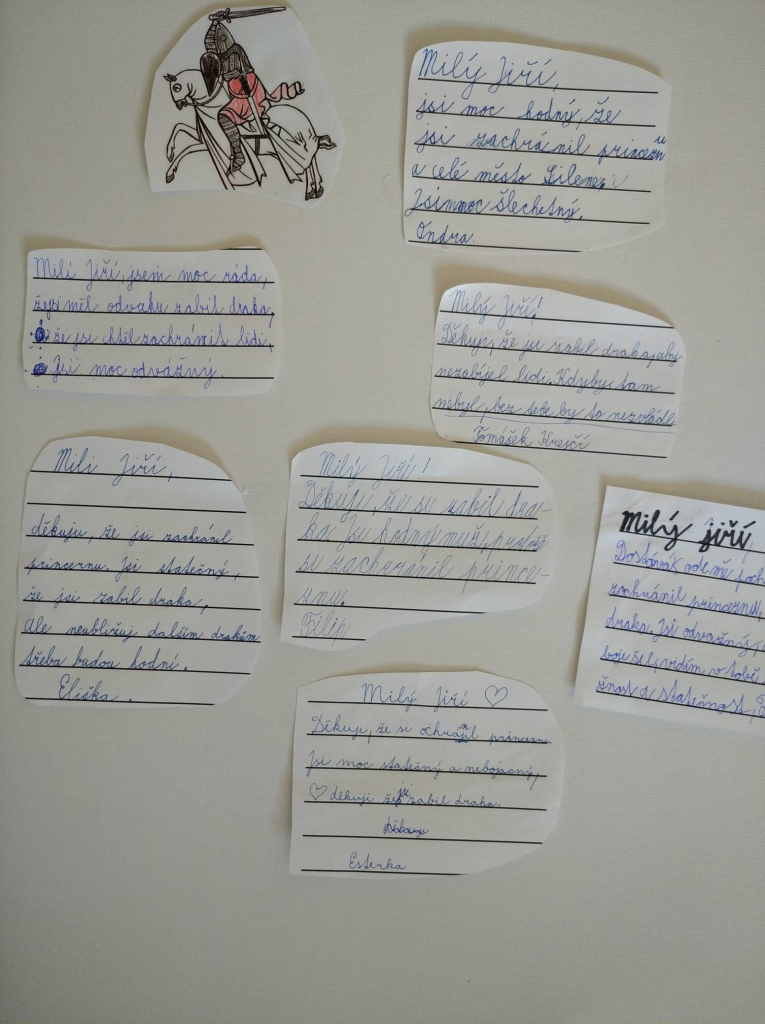 Milý Jiří,
jsi moc hodný, že
jsi zachránil princeznu
a celé město Silene.
Jsi moc šlechetný.
Ondra
Milí Jiří, jsem moc ráda,
že jsi měl odvahu zabít draka,
že jsi chtěl zachránit lidi.
Jsi moc odvážný.
Milý Jiří!
Děkuji, že jsi zabil draka, aby
nezabíjel lidi. Kdybys tam
nebyl, bez tebe by to nezvládli
Tomášek Krejčí
Milí Jiří,
děkuju, že jsi zachránil
princeznu. Jsi statečný,
že jsi zabil draka,
Ale neubližuj dalším drakům
třeba budou hodní.
Eliška.
Milý Jiří!
Děkuji, že si zabil dra-
ka. Jsi hodný muž, protože
si zachránil prince-
znu.
Filip
Milý Jiří
Dostáváš ode mě poch
zachránil princeznu,
draka. Jsi odvážný,
boje šel, vidím v tobě
žnost a statečnost,
Milý Jiří ♡
Děkuji, že si ochránil princeznu
Jsi moc statečný a nebojácný,
♡ děkuji že jsi zabil draka.
Esterka